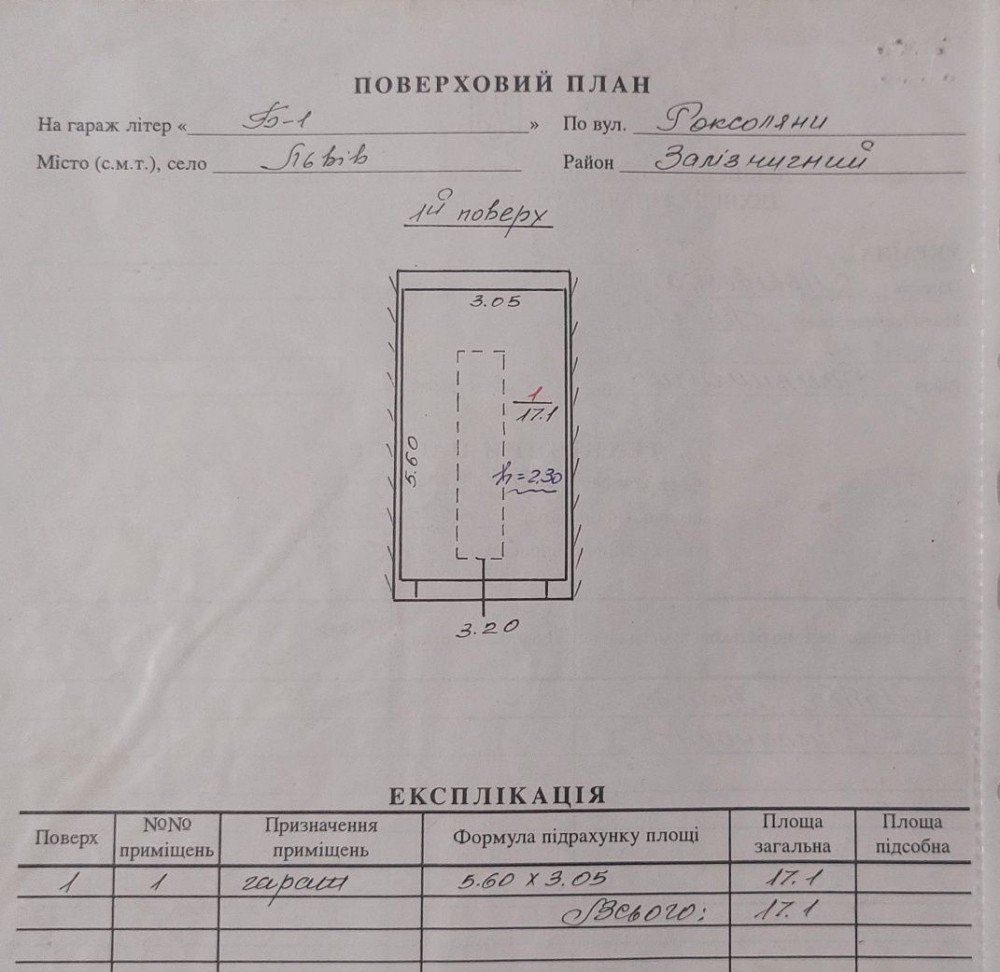 ПОВЕРХОВИЙ ПЛАН
На гараж літер « Б-1 » По вул. Роксоляни
Місто (с.м.т.), село Львів Район Залізничний
1й поверх
3.05
1
17.1
5.60
h=2.30
3.20
ЕКСПЛІКАЦІЯ
Поверх №№ приміщень Призначення приміщень Формула підрахунку площі Площа загальна Площа підсобна
1 1 гараж 5.60 x 3.05 17.1
Всього: 17.1